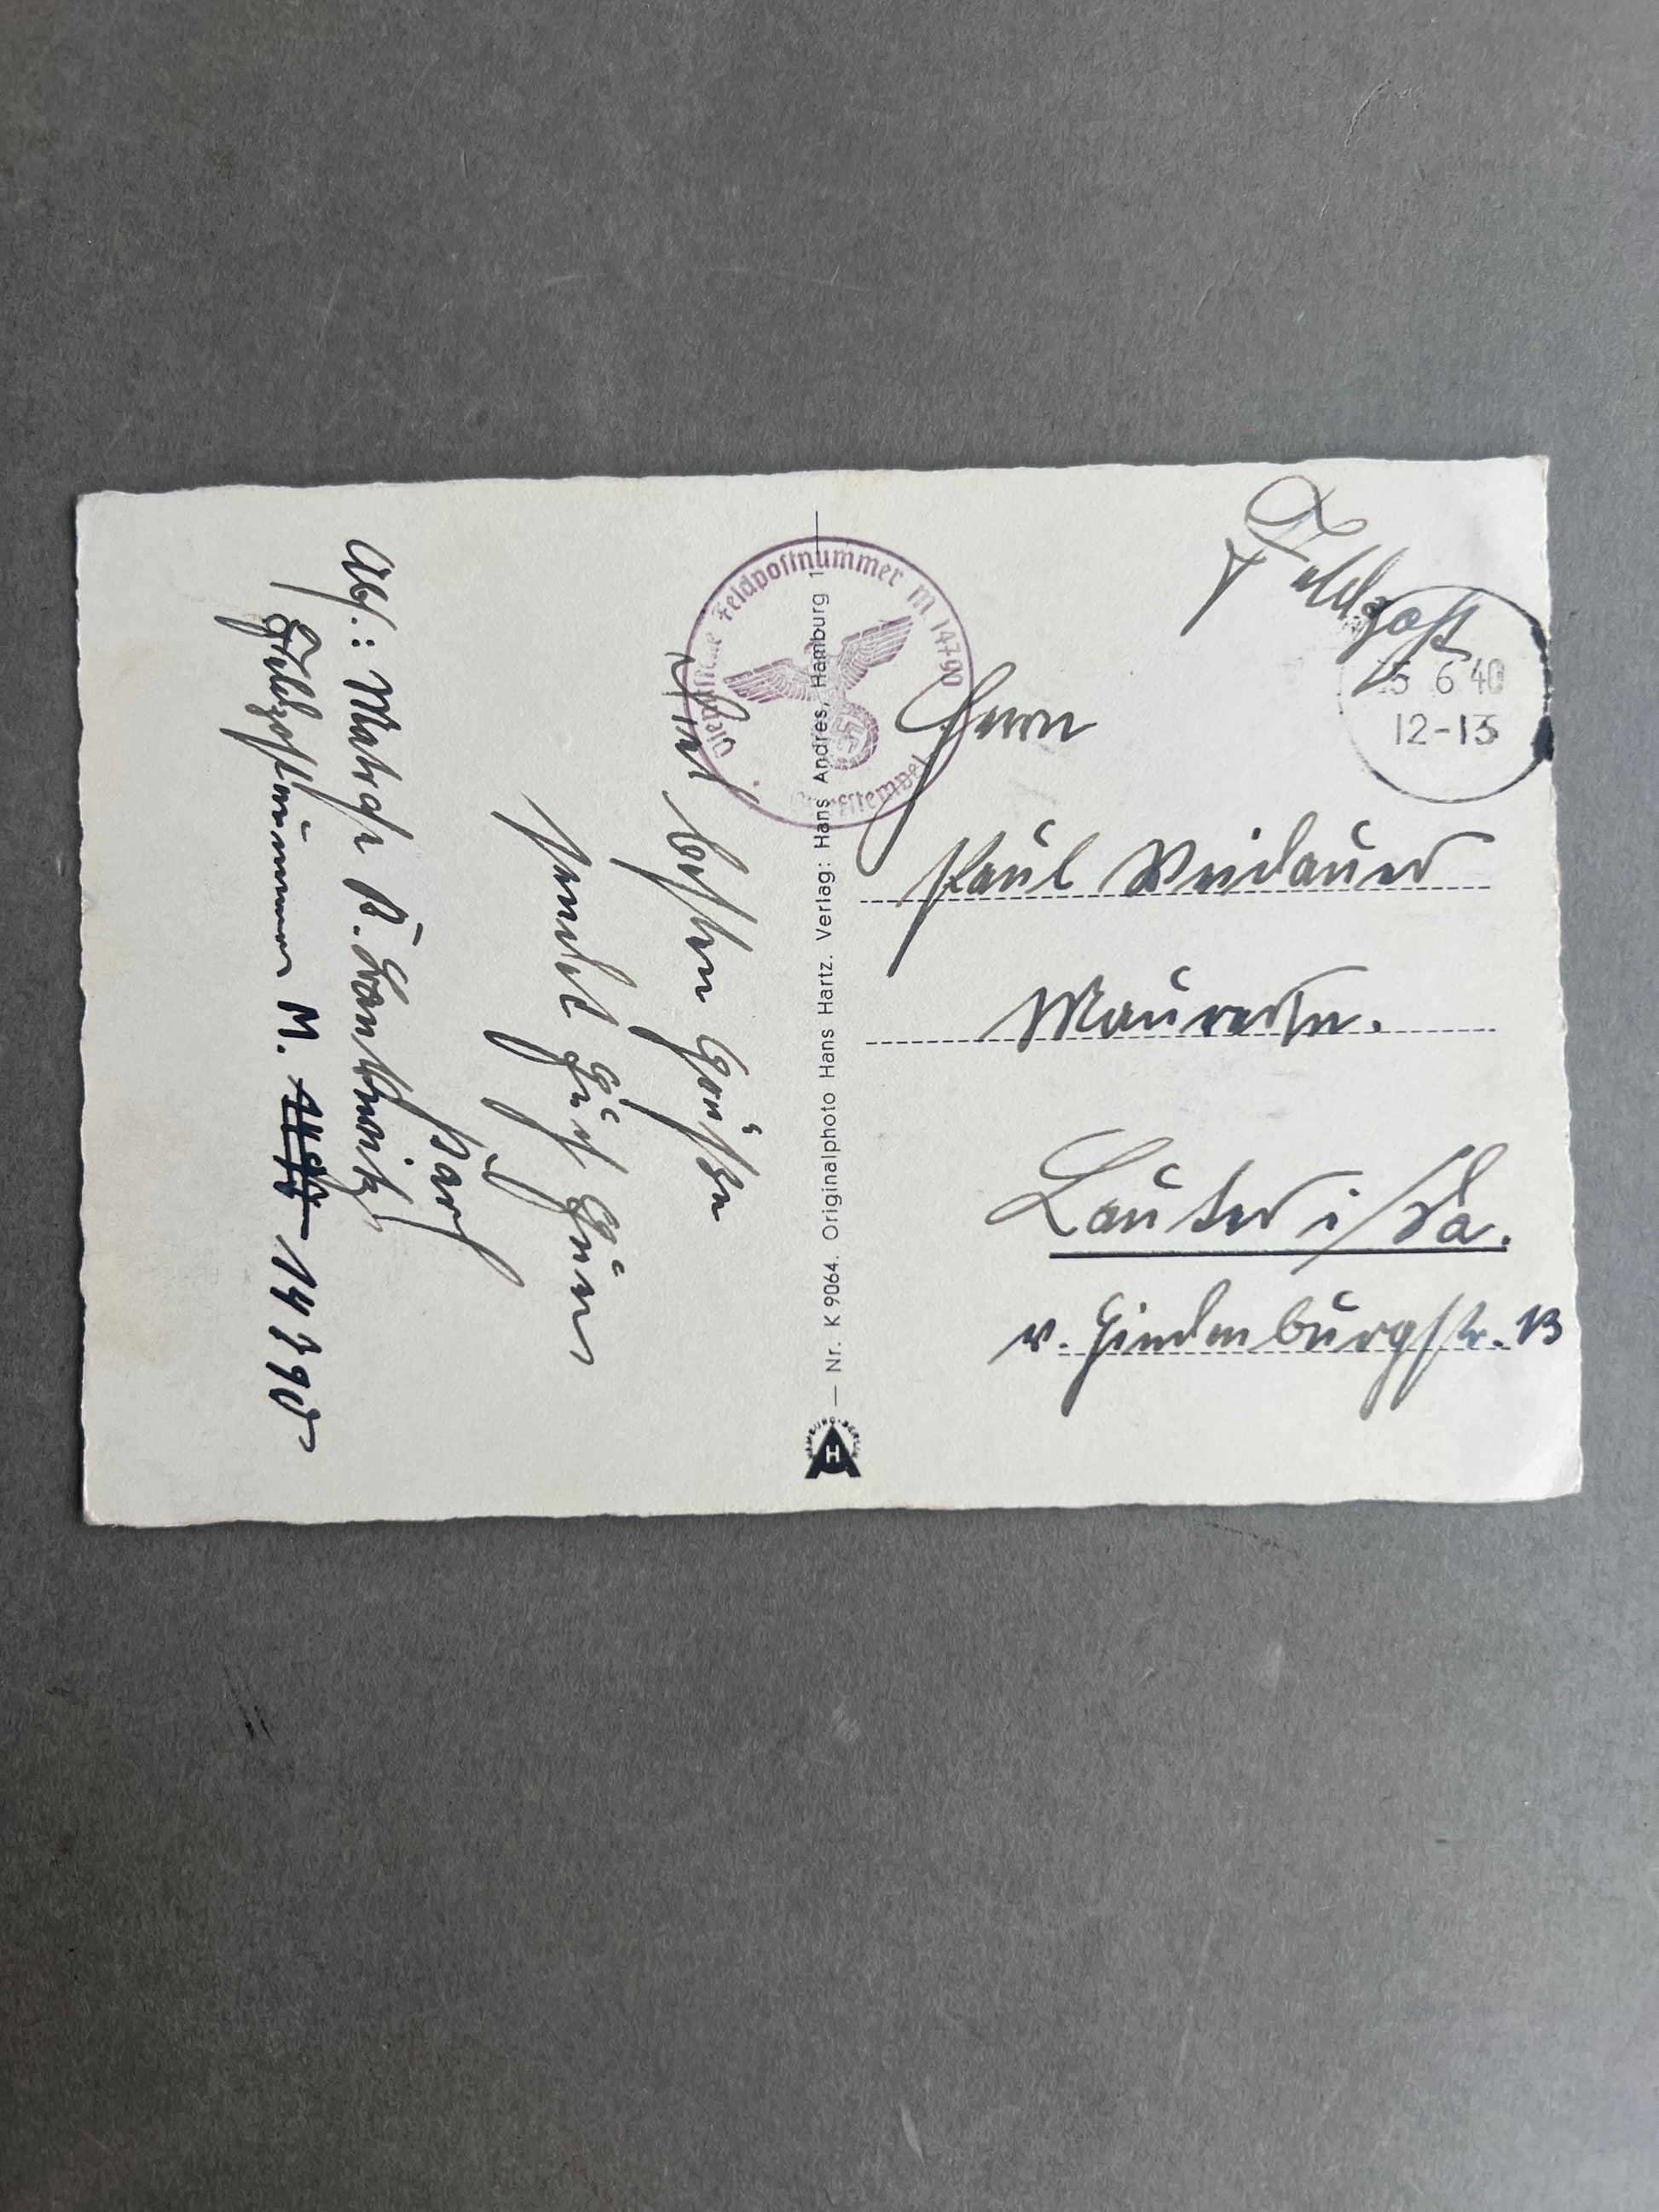 Feldpost
5 6 40
12-13
Herrn
Paul Weidauer
Maurermstr.
Lauter i/Sa.
v. Hindenburgstr. 13
Dienststelle Feldpostnummer M 14790
Briefstempel
— Nr. K 9064. Originalphoto Hans Hartz. Verlag: Hans Andres, Hamburg 1 —
HAMBURG-BERLIN
HA
Die besten Grüße
sendet Euch Euer
Karl
Abs.: Matrose K.
Feldpostnummer M. 14790